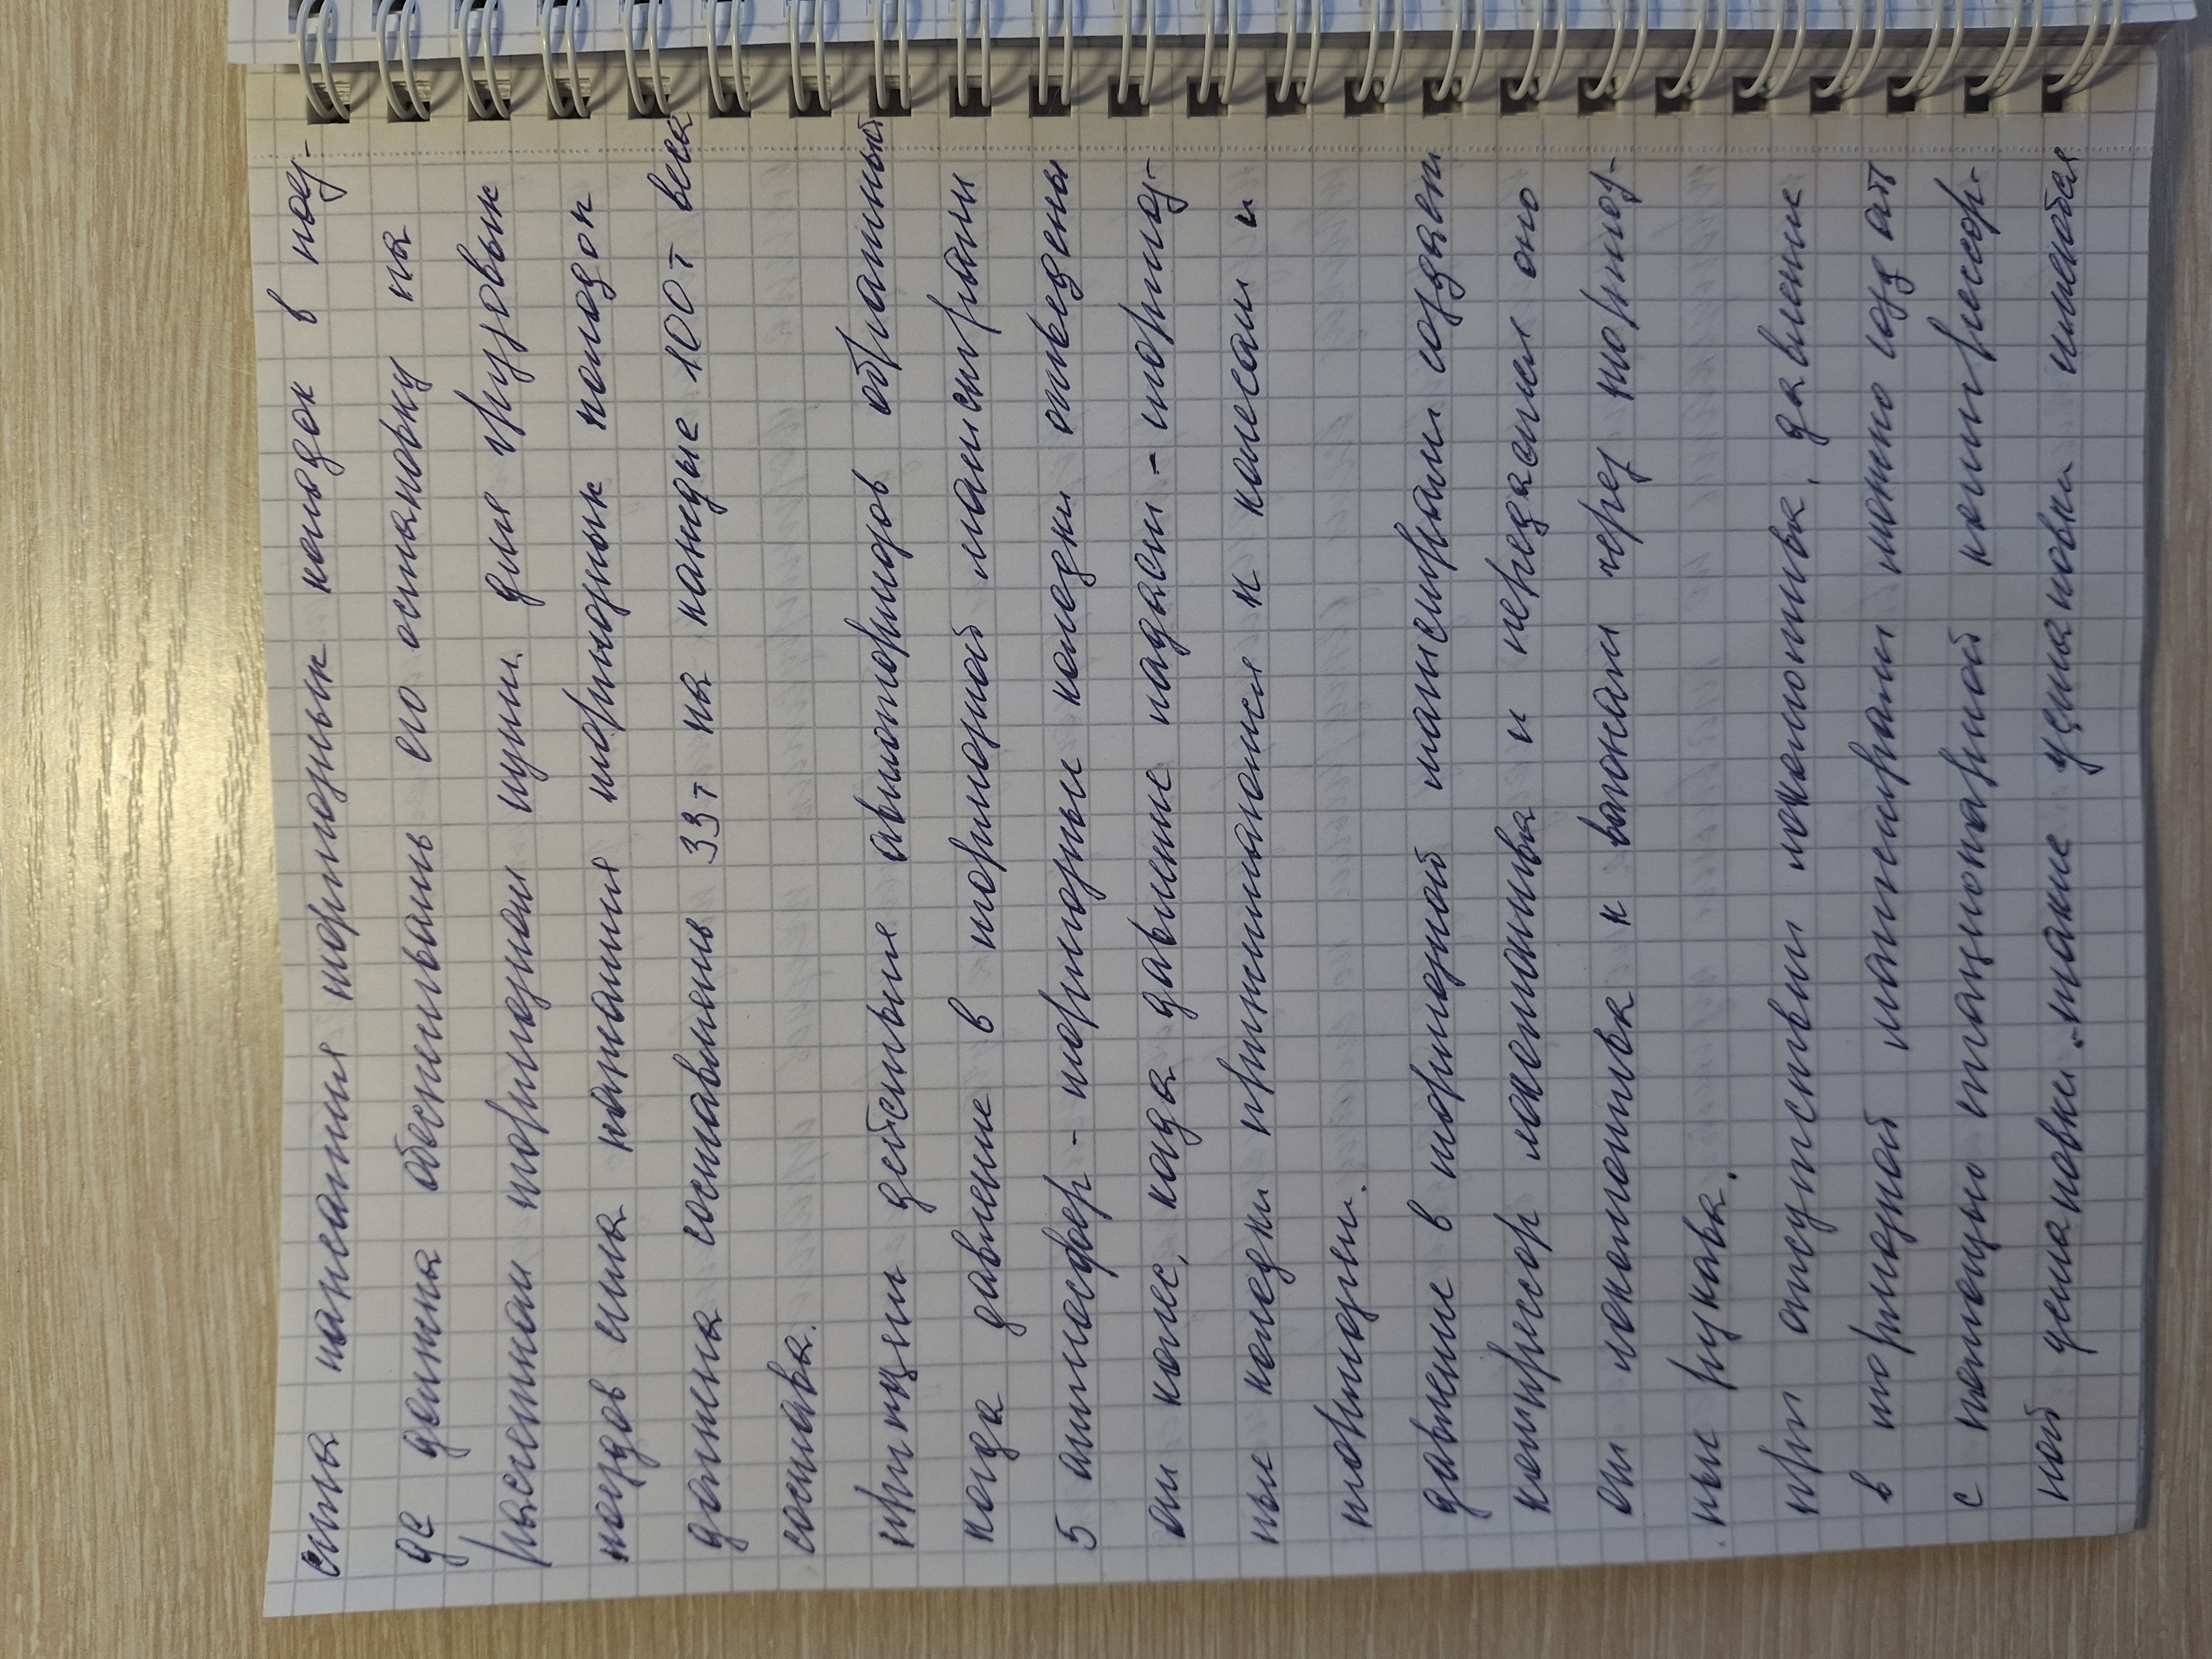 сила нажатия тормозных колодок в поез-
де должна обеспечивать его остановку на
расчетном тормозном пути. для грузовых
поездов сила нажатия тормозных колодок
должна составлять 33т на каждые 100т веса
состава.
принцип действия автотормозов обратный
когда давление в тормозной магистрали
5 атмосфер - тормозные колодки отведены
от колес, когда давление падает - тормоз-
ные колодки прижимаются к колесам и
тормозят.
давление в тормозной магистрали создает
компрессор локомотива и передается оно
от локомотива к вагонам через тормоз-
ные рукава.
при отсутствии локомотива, давление
в тормозной магистрали можно создать
с помощью стационарной компрессор-
ной установки. такие установки имеются